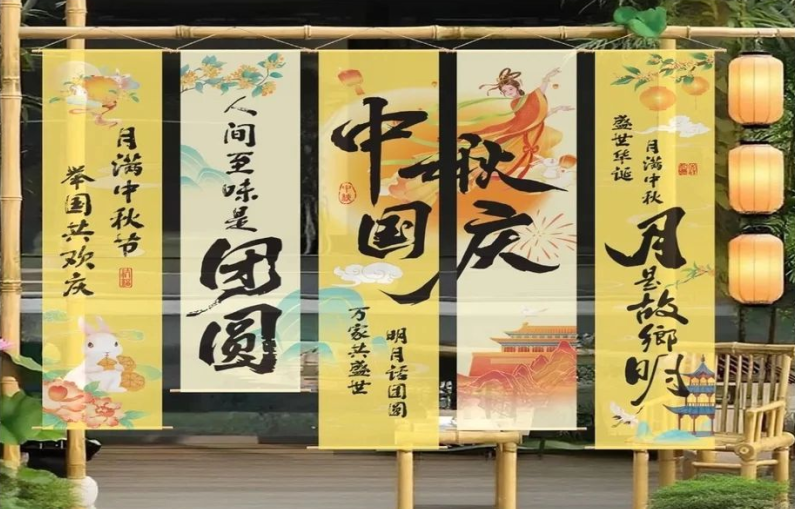 月满中秋节
举国共欢庆
人间至味是
团圆
中秋
国庆
明月话团圆
万家共盛世
月满中秋
盛世华诞
月是故鄉明